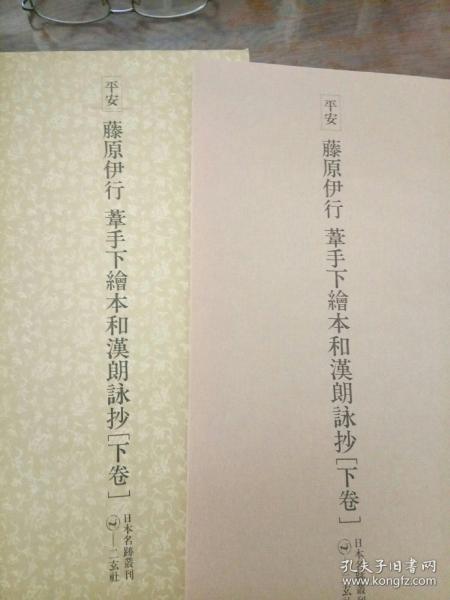 平安
藤原伊行 葦手下繪本和漢朗詠抄[下卷]
日本名跡叢刊
二玄社
平安
藤原伊行 葦手下繪本和漢朗詠抄[下卷]
日本名跡叢刊
二玄社
孔夫子旧书网